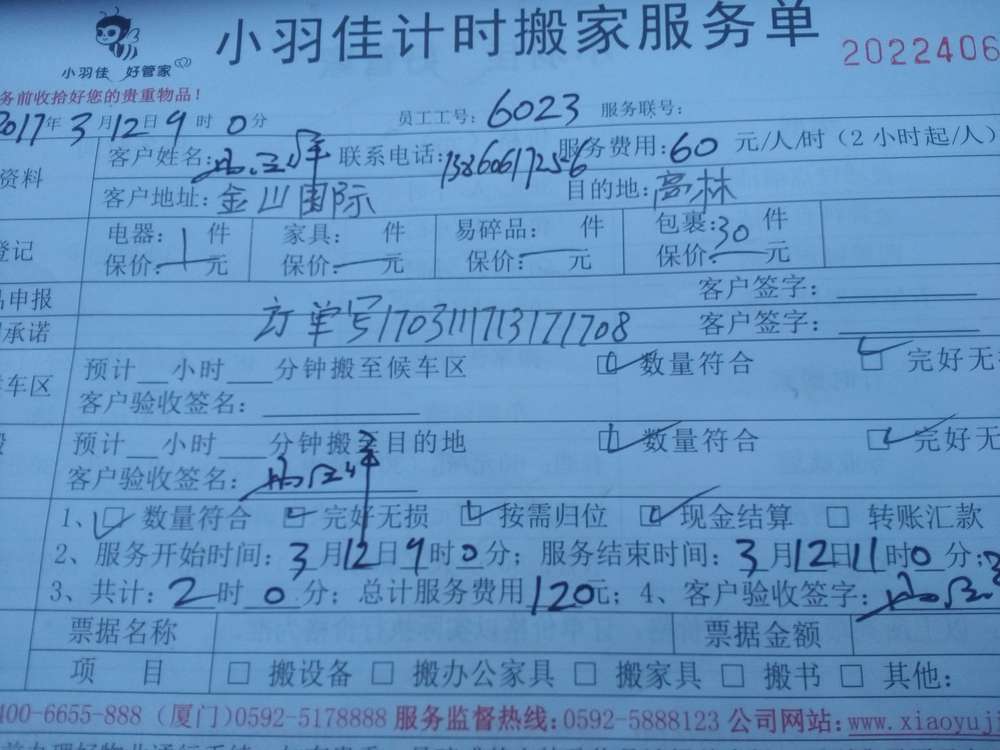 小羽佳计时搬家服务单
小羽佳 好管家
2022406
务前收拾好您的贵重物品！
2017年3月12日9时0分 员工工号：6023 服务联号：
资料 客户姓名： 联系电话：13860617256 服务费用：60元/人/时（2小时起/人）
客户地址：金山国际 目的地：高林
登记 电器：1件 家具： 件 易碎品： 件 包裹：30件
保价：—元 保价：—元 保价：—元 保价：—元
品申报 客户签字：
承诺 订单号170311713171708 客户签字：
车区 预计__小时__分钟搬至候车区 ☑数量符合 ☑完好无
客户验收签名：
预计__小时__分钟搬至目的地 ☑数量符合 ☑完好无
客户验收签名：
1、☑数量符合 ☑完好无损 ☑按需归位 ☑现金结算 □转账汇款
2、服务开始时间：3月12日9时0分；服务结束时间：3月12日11时0分；
3、共计：2时0分；总计服务费用120元；4、客户验收签字：
票据名称 票据金额
项目 □搬设备 □搬办公家具 □搬家具 □搬书 □其他：
400-6655-888（厦门）0592-5178888 服务监督热线：0592-5888123 公司网站：www.xiaoyuj